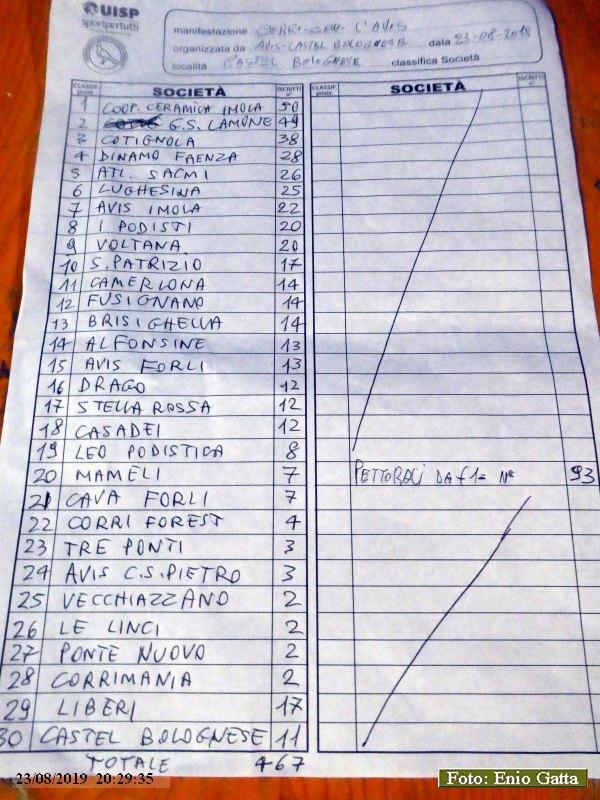 UISP
sportpertutti
manifestazione CORRI-CON L'AVIS
organizzata da AVIS-CASTEL BOLOGNESE data 23-08-2019
località CASTEL BOLOGNESE classifica Società
CLASSIF. posiz. SOCIETÀ ISCRITTI n° CLASSIF. posiz. SOCIETÀ ISCRITTI n°
1 COOP. CERAMICA IMOLA 50
2 G.S. LAMONE 49
3 COTIGNOLA 38
4 DINAMO FAENZA 28
5 ATL. SACMI 26
6 LUGHESINA 25
7 AVIS IMOLA 22
8 I PODISTI 20
9 VOLTANA 20
10 S. PATRIZIO 17
11 CAMERLONA 14
12 FUSIGNANO 14
13 BRISIGHELLA 14
14 ALFONSINE 13
15 AVIS FORLI 13
16 DRAGO 12
17 STELLA ROSSA 12
18 CASADEI 12
19 LEO PODISTICA 8
20 MAMELI 7 PETTORALI DA €1= N° 93
21 CAVA FORLI 7
22 CORRI FOREST 4
23 TRE PONTI 3
24 AVIS C.S. PIETRO 3
25 VECCHIAZZANO 2
26 LE LINCI 2
27 PONTE NUOVO 2
28 CORRIMANIA 2
29 LIBERI 17
30 CASTEL BOLOGNESE 11
TOTALE 467
23/08/2019 20:29:35
Foto: Enio Gatta